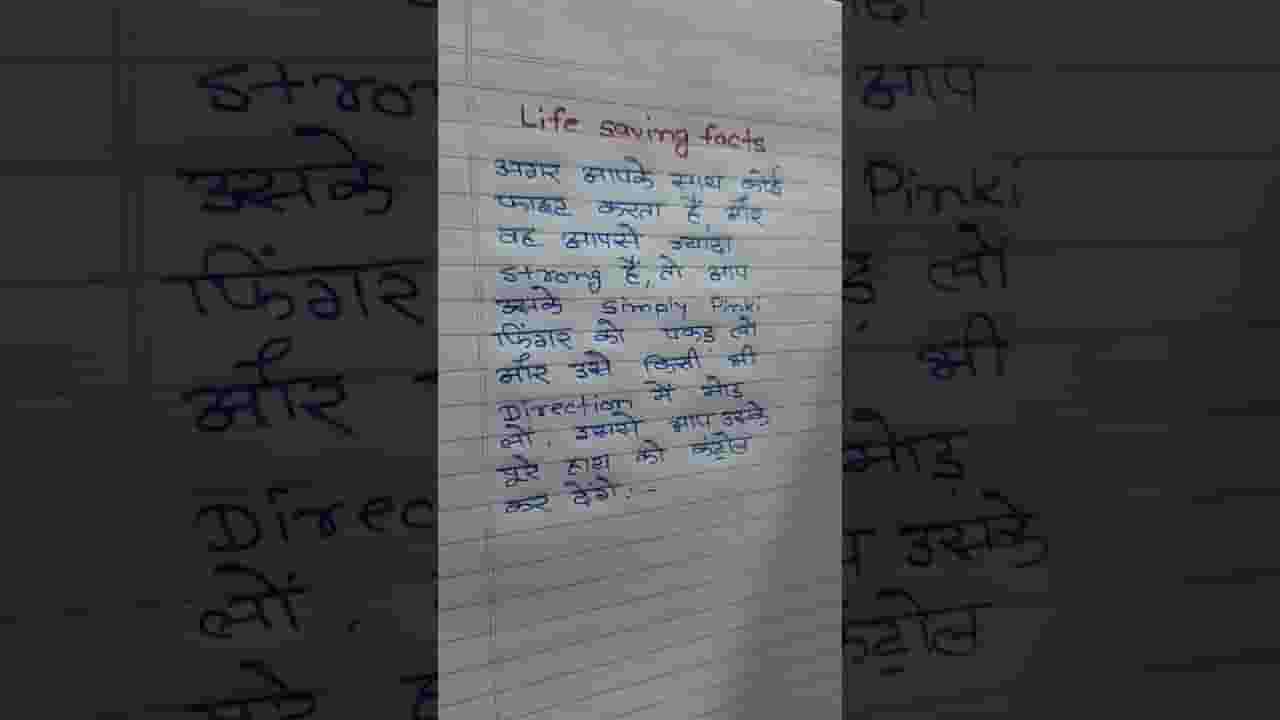 Life saving facts
अगर आपके साथ कोई
फाइट करता है, और
वह आपसे ज्यादा
strong है, तो आप
उसके simply Pinki
फिंगर को पकड़ लो
और उसे किसी भी
Direction में मोड़
लों. इससे आप उसके
पूरे हाथ को कंट्रोल
कर देंगे...